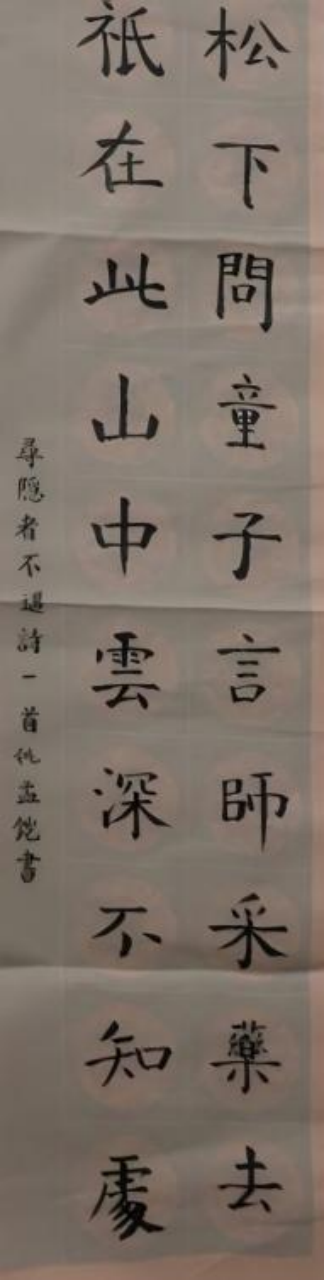 松下問童子言師采藥去
祇在此山中雲深不知處
尋隱者不遇詩一首姚孟鎧書